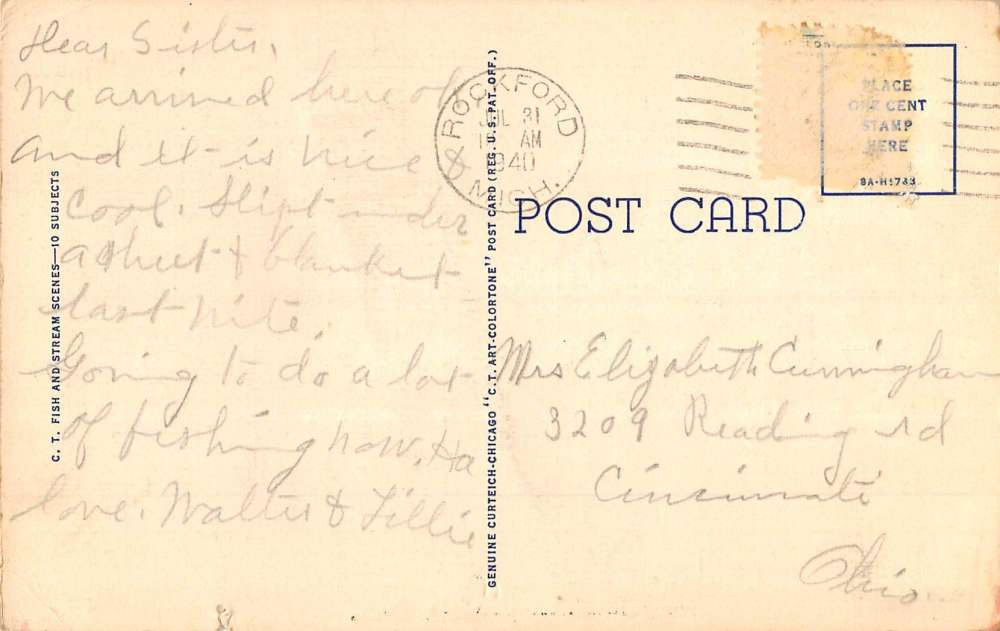 Dear Sister,
We arrived here ok
and it is nice &
cool. Slept under
a sheet & blanket
last nite.
Going to do a lot
of fishing now. Ha
love. Walter & Tillie
C. T. FISH AND STREAM SCENES—10 SUBJECTS
GENUINE CURTEICH-CHICAGO "C.T. ART-COLORTONE" POST CARD (REG. U.S. PAT. OFF.)
ROCKFORD
JUL 31
AM
1940
MICH.
PLACE
ONE CENT
STAMP
HERE
8A-H1733
POST CARD
Mrs Elizabeth Cunningham
3209 Reading rd
Cincinnati
Ohio.